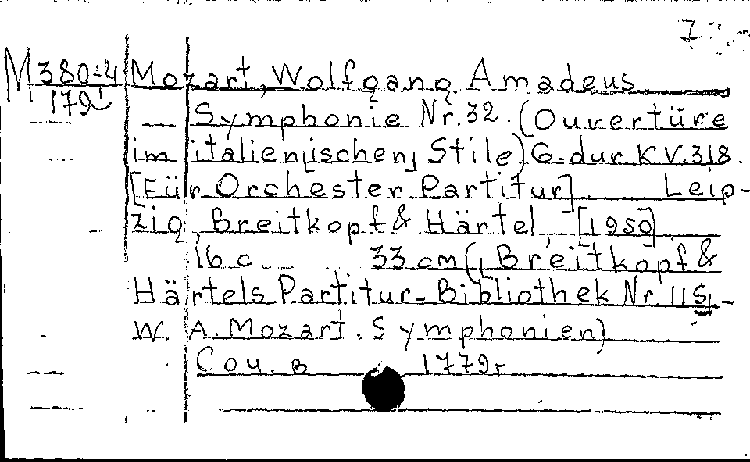 M 380-4 Mozart, Wolfgang Amadeus
179
Symphonie Nr. 32. (Ouvertüre
im italien[ischen] Stile) G-dur KV.318.
[Für Orchester Partitur]. Leip-
zig, Breitkopf & Härtel [1950]
16 c. 33 cm (Breitkopf &
Härtels Partitur-Bibliothek Nr.
W. A. Mozart. Symphonien)
Соч. в 1779г